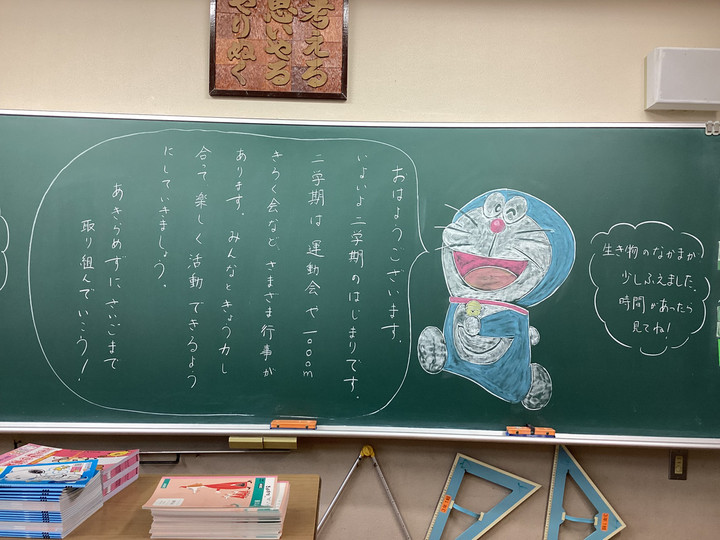 考える
思いやる
やりぬく
おはようございます。
いよいよ二学期のはじまりです。
二学期は運動会や一〇〇〇m
きろく会など、さまざま行事が
あります。みんなときょう力し
合って楽しく活動できるよう
にしていきましょう。
あきらめずにさいごまで
取り組んでいこう!
生き物のなかまが
少しふえました。
時間があったら
見てね!